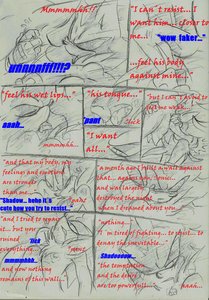 Mmmmmmh!!
"I can't resist... I
want him... closer to
me...
"wow faker..."
uuunnfff!!!?
...feel his body
against mine..."
"feel his wet lips..."
"his tongue..."
"but I can't avoid to
feel me weak...
aaah...
pant
lick
mmmmhh...
"I want
all...
"and that my body, my
feelings and emotions
are stronger
than me..."
"Shadow... hehe it's
cute how you try to resist..."
pant
"a month ago I built a wall against
that... against you, Sonic...
and was largely
destroyed the night
when I dreamed about you...
"and I tried to repair
it... but you
ruined
everything...
lick
mmmmhhh...
and now nothing
remains of this wall...
pant
"nothing...
"I'm tired of fighting... to resist... to
denay the inevitable..."
Shadooow...
"the temptation
and the desire
are too powerfull..."
haaah...